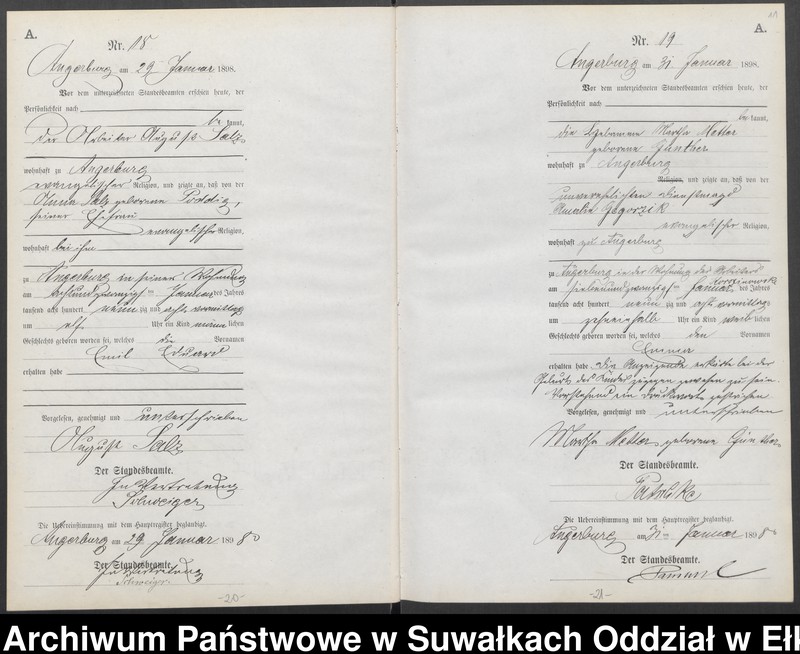 A.
Nr. 18
Angerburg am 29 Januar 1898.
Vor dem unterzeichneten Standesbeamten erschien heute, der
Persönlichkeit nach
be kannt,
der Arbeiter August Salz
wohnhaft zu Angerburg
evangelischer Religion, und zeigte an, daß von der
Anna Salz geborene
seiner Ehefrau
evangelischer Religion,
wohnhaft bei ihm
zu Angerburg in seiner Wohnung
am Januar des Jahres
tausend acht hundert neun zig und acht vormittags
um elf Uhr ein Kind männ lichen
Geschlechts geboren worden sei, welches die Vornamen
Emil Eduard
erhalten habe
Vorgelesen, genehmigt und unterschrieben
August Salz
Der Standesbeamte.
In Vertretung
Schweiger
Die Uebereinstimmung mit dem Hauptregister beglaubigt.
Angerburg am 29 Januar 1898
Der Standesbeamte.
In Vertretung
Schweiger
-20-
A.
Nr. 19
Angerburg am 31 Januar 1898.
Vor dem unterzeichneten Standesbeamten erschien heute, der
Persönlichkeit nach
be kannt,
die Hebamme Martha Netter
geborene Günther
wohnhaft zu Angerburg
Religion, und zeigte an, daß von der
unverehelichten Dienstmagd
Amalie Gogorzik
evangelischer Religion,
wohnhaft zu Angerburg
zu Angerburg in der Wohnung des Arbeiters
am siebenundzwanzigsten Januar des Jahres
tausend acht hundert neun zig und acht vormittags
um zehneinhalb Uhr ein Kind weib lichen
Geschlechts geboren worden sei, welches den Vornamen
Emma
erhalten habe. Die Anzeigende erklärte bei der
Geburt des Kindes zugegen gewesen zu sein.
Vorstehend ein Druckwort gestrichen
Vorgelesen, genehmigt und unterschrieben
Martha Netter geborene Günther
Der Standesbeamte.
Die Uebereinstimmung mit dem Hauptregister beglaubigt.
Angerburg am 31 Januar 1898
Der Standesbeamte.
-21-
Archiwum Państwowe w Suwałkach Oddział w Ełk